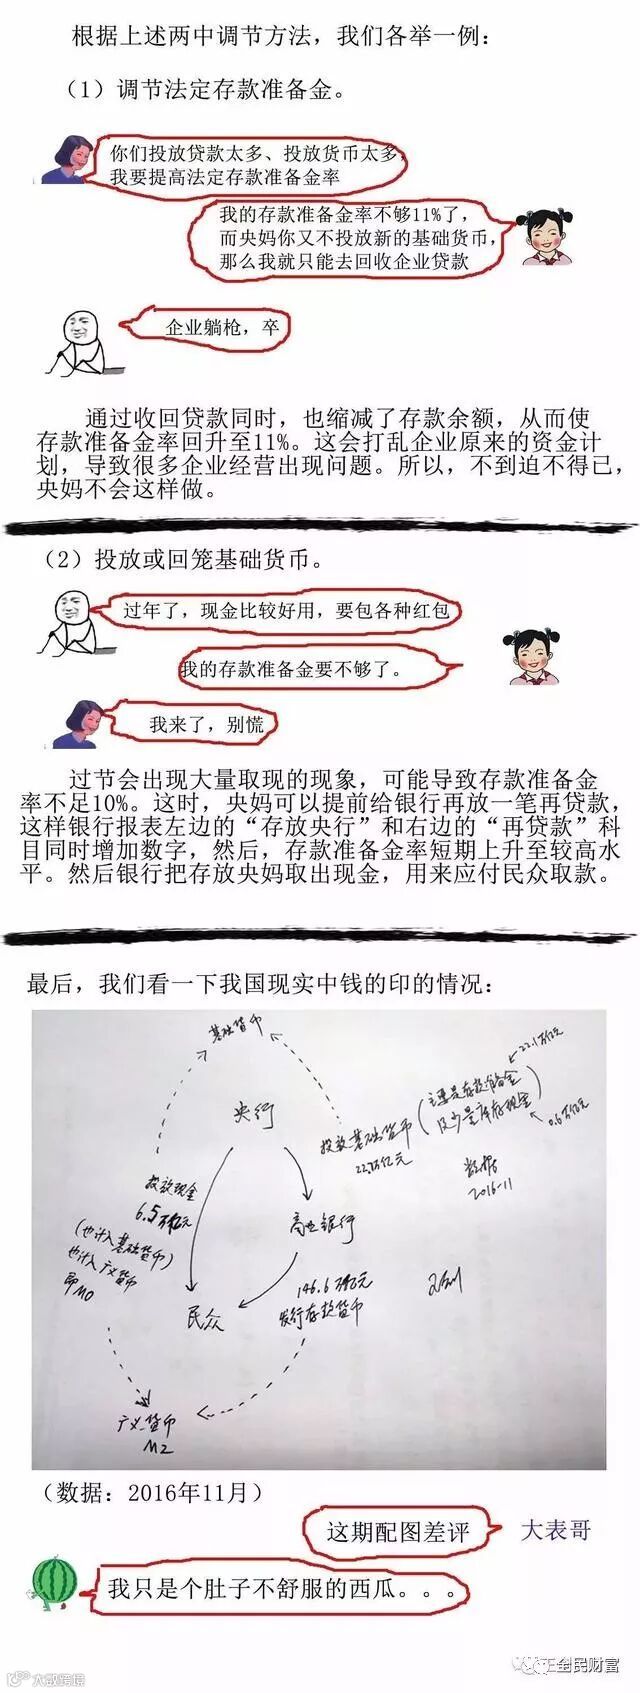 根据上述两中调节方法，我们各举一例：
（1）调节法定存款准备金。
你们投放贷款太多、投放货币太多，
我要提高法定存款准备金率
我的存款准备金率不够11%了，
而央妈你又不投放新的基础货币，
那么我就只能去回收企业贷款
企业躺枪，卒
通过收回贷款同时，也缩减了存款余额，从而使
存款准备金率回升至11%。这会打乱企业原来的资金计
划，导致很多企业经营出现问题。所以，不到迫不得已，
央妈不会这样做。
（2）投放或回笼基础货币。
过年了，现金比较好用，要包各种红包
我的存款准备金要不够了。
我来了，别慌
过节会出现大量取现的现象，可能导致存款准备金
率不足10%。这时，央妈可以提前给银行再放一笔再贷款，
这样银行报表左边的“存放央行”和右边的“再贷款”科
目同时增加数字，然后，存款准备金率短期上升至较高水
平。然后银行把存放央妈取出现金，用来应付民众取款。
最后，我们看一下我国现实中钱的印的情况：
基础货币
22.1万亿元
主要是存款准备金
及少量库存现金
0.6万亿元
央行
投放基础货币
22.7万亿元
数据
2016-11
投放现金
6.5万亿元
（也计入基础货币）
也计入广义货币
即M0
商业银行
146.6万亿元
发行存款货币
民众
广义货币
M2
（数据：2016年11月）
这期配图差评
大表哥
我只是个肚子不舒服的西瓜。。。
全民财富
大数跨境